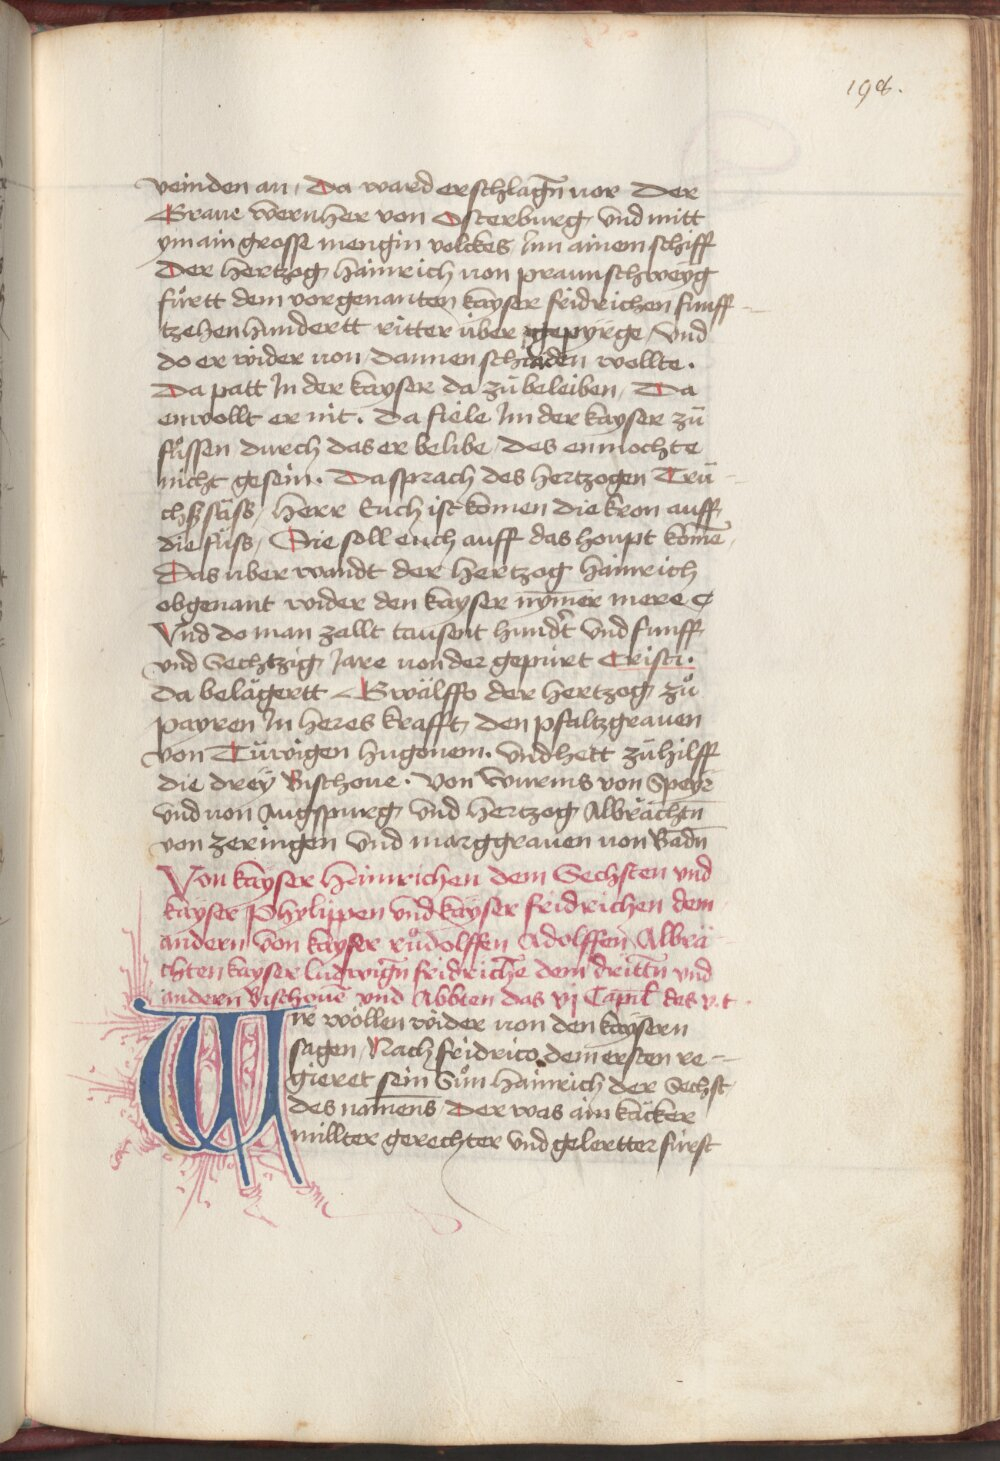 198.
veinden an / Da ward erschlagn̄ vor Der
Graue wernher von Osterburg / vnd mitt
ym ain grosse mengin volckes / Jnn ainem schiff
Der hertzog hainrich von praunschweyg
fůrtt dem vorgenanten kayser fridrichen funff-
tzehenhundertt ritter über gepyrge / Vnd
do er wider von dannen schaiden wollte.
Da patt Jn der kayser da zů beleiben / Da
enwollt er nit. Da fiele Jm der kayser zů
fůssen durch das er belibe / des enmochte
nicht gesein. Da sprach des hertzogen Trů-
chssäss / Herr Euch ist komen die kron auff
die fůss / Sie soll euch auff das houpt kōmē
Das uber wandt der hertzog hainrich
obgenant wider den kayser nym̄er mere
Vnd do man zallt tausent hundr̄t vnd funff
vnd Sechtzig Jare von der gepurt Cristi.
Da belägertt Gwälffo der hertzog zů
payren Jn heres krafft / den pfaltzgrauen
von Tüwigen hugonem. Vnd hett zů hilff
die dreÿ Bischoue. von wurms von Speyr̄
vnd von Augspurg / vnd hertzog Albrächtn̄
von zeringen vnd marggrauen von Badn̄
Von kayser Hainrichen dem Sechsten vnd
kayser Phylippen vnd kayser fridrichen dem
andern von kayser růdolffen Adolffen Albrä-
chten kayser ludwign̄ fridrichē dem drittn̄ vnd
andern Bischouē vnd Abbten das vj Capitl̄ des v.t.
Wir wöllen wider von den kaysern
sagen / Nach fridrico dem ersten re-
gieret sein Sůn hainrich der Sechst
des namens / Der was ain käcker
millter gerechter vnd gelertter fürst